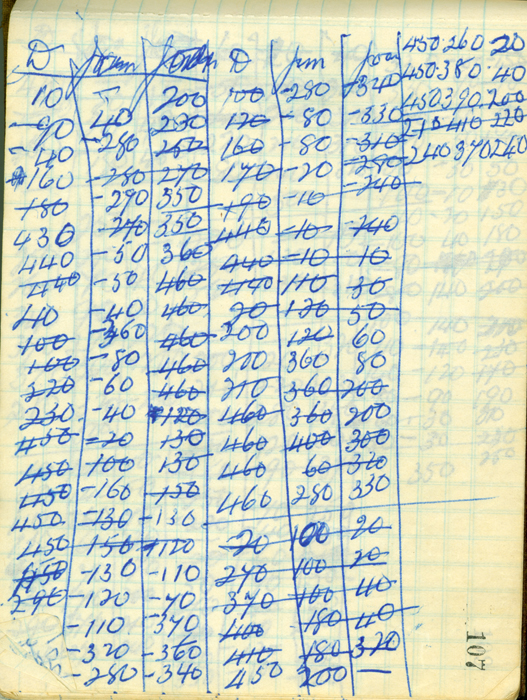 D D 450·260·20
450·380·40
10 200 100 -280 -340 450·390·200
-90 40 230 120 -80 -330 210 410 220
-40 -280 250 160 -80 -310 240 370 240
160 -280 270 170 -20 -280
180 -290 350 190 -10 -240
430 -270 350 440 -10 -140
440 -50 360 440 -10 10
440 -50 460 440 110 30
40 -40 460 20 120 50
100 460 200 120 60
100 -80 460 200 360 80
320 -60 460 210 360 200
230 -40 120 460 360 200
450 -20 130 460 400 300
450 100 130 460 60 320
450 -160 150 460 280 330
450 -130 -130
450 150 -20 100 20
450 -130 -110 270 100 20
290 -120 -70 370 100 40
-110 370 400 180 40
-320 -360 410 180 320
-280 -340 450 200 —
107